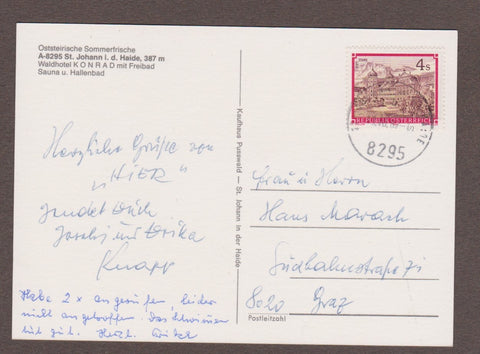 Oststeirische Sommerfrische
A-8295 St. Johann i. d. Haide, 387 m
Waldhotel KONRAD mit Freibad
Sauna u. Hallenbad
Herzliche Grüße von
"HIER"
sendet Euch
und Erika
Knapp
Habe 2 x angerufen, leider
nicht angetroffen. Das Schwimmen
tut gut. Herzl.
Kaufhaus Pusswald — St. Johann in der Haide
4 S
REPUBLIK ÖSTERREICH
8295
Frau u Herrn
Hans
Südbahnstraße
8020 Graz
Postleitzahl